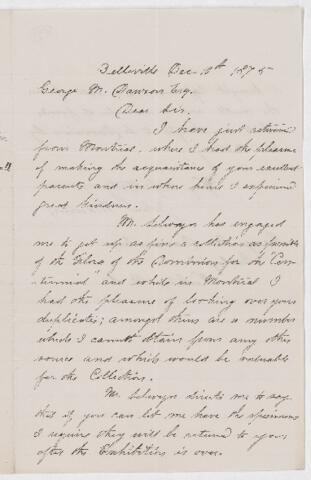 Belleville Dec. 10th 1875
George M. Dawson Esq.
Dear Sir.
I have just returned
from Montreal, where I had the pleasure
of making the acquaintance of your excellent
parents and in whose house I experienced
great kindness.
Mr. Selwyn has engaged
me to get up as fine a collection as possible
of the Flora of the Dominion for the "Cen-
tennial" and while in Montreal I
had the pleasure of looking over your
duplicates; amongst them are a number
which I cannot obtain from any other
source and which would be valuable
for the Collection.
Mr. Selwyn directs me to say
that if you can let me have the specimens
I require they will be returned to you
after the Exhibition is over.